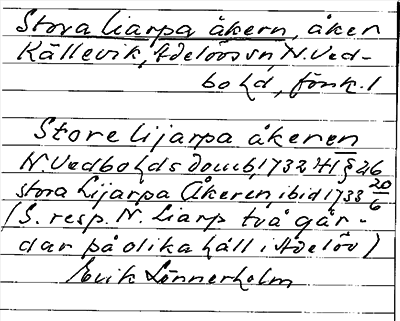 Stora Liarpa åkern, åker
Källevik, Adelövs sn, N. Ved-
bo hd, förk. 1
Store Lijarpa åkeren
N. Vedbo hds domb, 1732 HT § 26
stora Lijarpa Åkeren, ibid 1733 20/6
(S. resp. N. Liarp två går-
dar på olika håll i Adelöv)
Erik Lönnerholm